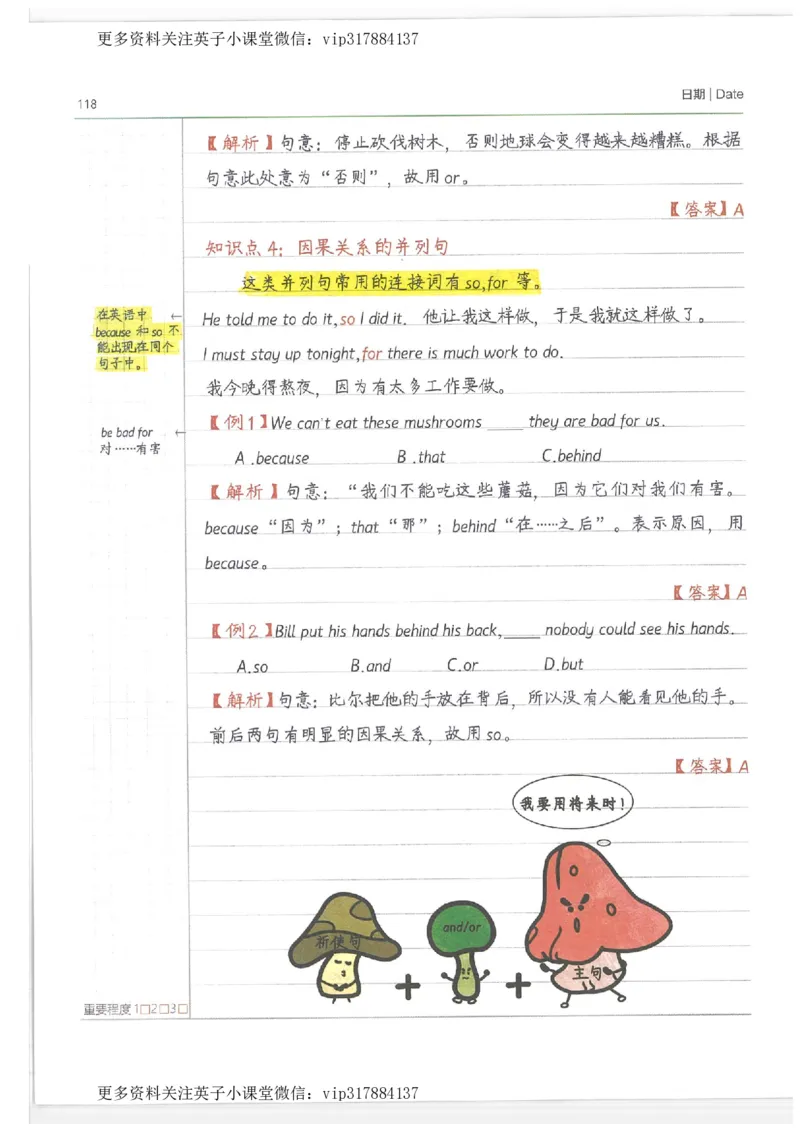 更多资料关注英子小课堂微信：vip317884137
118
日期 | Date
【解析】句意：停止砍伐树木，否则地球会变得越来越糟糕。根据
句意此处意为“否则”，故用or。
【答案】A
知识点4：因果关系的并列句
这类并列句常用的连接词有so,for 等。
在英语中
because 和 so 不
能出现在同个
句子中。
He told me to do it,so I did it. 他让我这样做，于是我就这样做了。
I must stay up tonight,for there is much work to do.
我今晚得熬夜，因为有太多工作要做。
【例1】We can't eat these mushrooms _____ they are bad for us.
be bad for
对……有害
A .because B .that C.behind
【解析】句意：“我们不能吃这些蘑菇，因为它们对我们有害。
because“因为”；that“那”；behind“在……之后”。表示原因，用
because。
【答案】A
【例2】Bill put his hands behind his back,_____ nobody could see his hands.
A.so B.and C.or D.but
【解析】句意：比尔把他的手放在背后，所以没有人能看见他的手。
前后两句有明显的因果关系，故用so。
【答案】A
我要用将来时！
and/or
祈使句
主句
重要程度 1□2□3□
更多资料关注英子小课堂微信：vip317884137